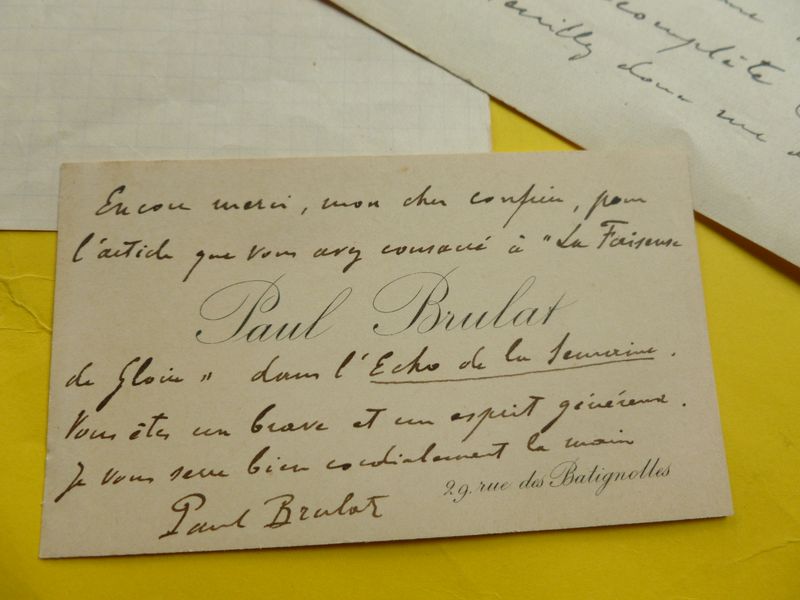 complète
veuillez donc me
Encore merci, mon cher confrère, pour
l'article que vous avez consacré à "La Faiseuse
Paul Brulat
de Gloire" dans l'Echo de la Semaine.
Vous êtes un brave et un esprit généreux.
Je vous serre bien cordialement la main
29, rue des Batignolles
Paul Brulat